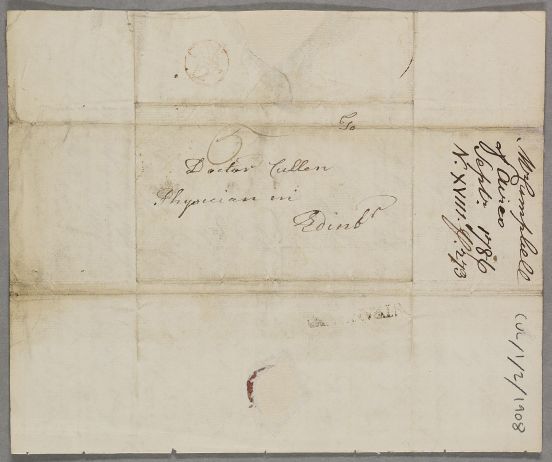 To
Doctor Cullen
Physician in
Edinbr
Mr Campbell
of Airies
Septr. 1786
N. XVIII.
CUL/1/2/1908